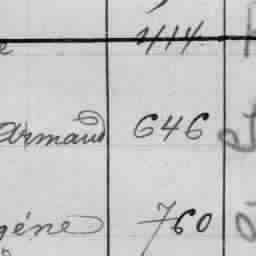 414
Armand 646
gène 760